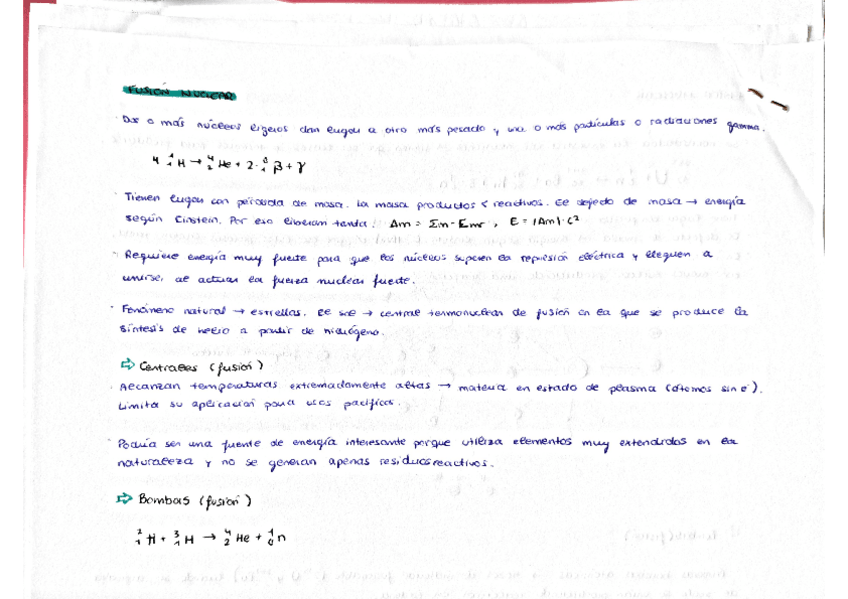 FUSIÓN NUCLEAR
· Dos o más núcleos ligeros dan lugar a otro más pesado y una o más partículas o radiaciones gamma.
4 ¹₁H → ⁴₂He + 2· ⁰₁β + γ
· Tienen lugar con pérdida de masa. La masa productos < reactivos. El defecto de masa → energía
según Einstein. Por eso liberan tanta! Δm = Σm - Σmr, E = |Δm|·c²
· Requiere energía muy fuerte para que los núcleos superen la repulsión eléctrica y lleguen a
unirse, al actuar la fuerza nuclear fuerte.
· Fenómeno natural → estrellas. El sol → central termonuclear de fusión en la que se produce la
síntesis de helio a partir de hidrógeno.
⇨ Centrales (fusión)
· Alcanzan temperaturas extremadamente altas → materia en estado de plasma (átomos sin e⁻).
Limita su aplicación para usos pacíficos.
· Podría ser una fuente de energía interesante porque utiliza elementos muy extendidos en la
naturaleza y no se generan apenas residuos reactivos.
⇨ Bombas (fusión)
²₁H + ³₁H → ⁴₂He + ¹₀n